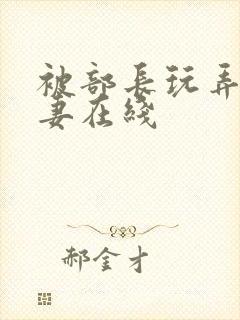 被部长玩弄
妻在线
郝金才